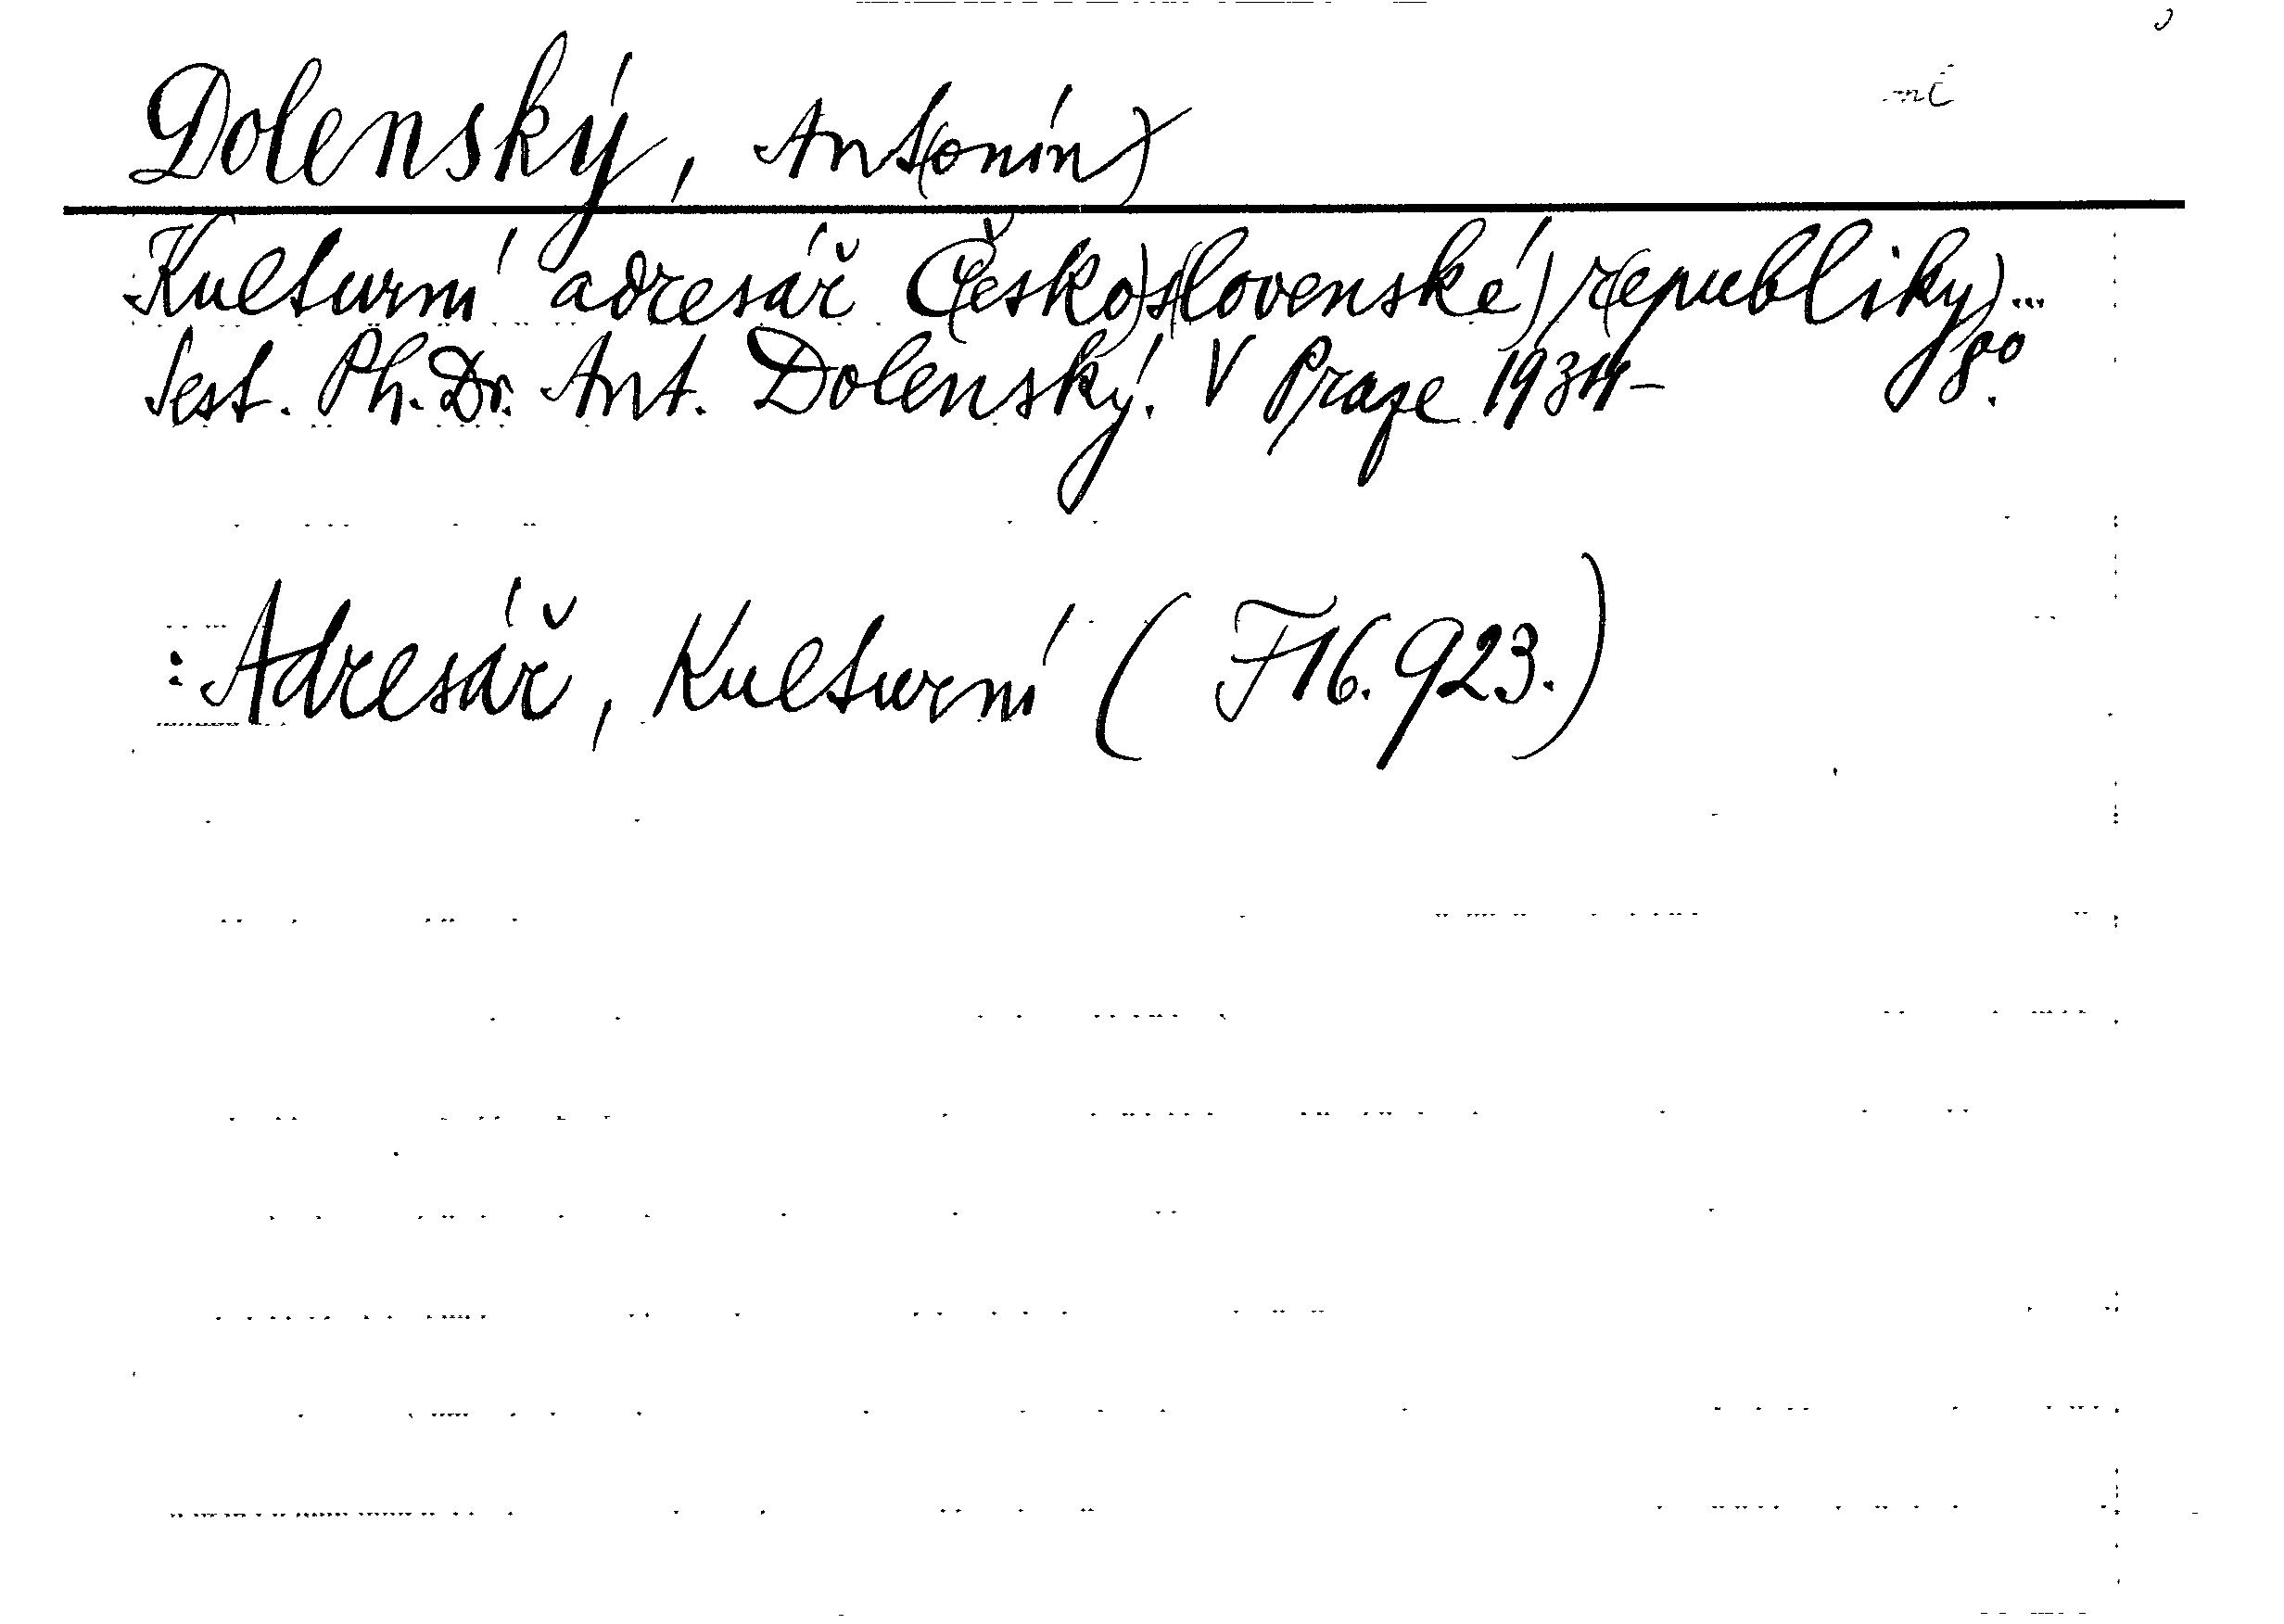 Dolenský, Ant(onín)
Kulturní adresář Č(esko)s(lovenské) r(epubliky)...
Sest. Ph. Dr. Ant. Dolenský. V Praze 1934- 8º.
: Adresář, Kulturní (F 16.923.)